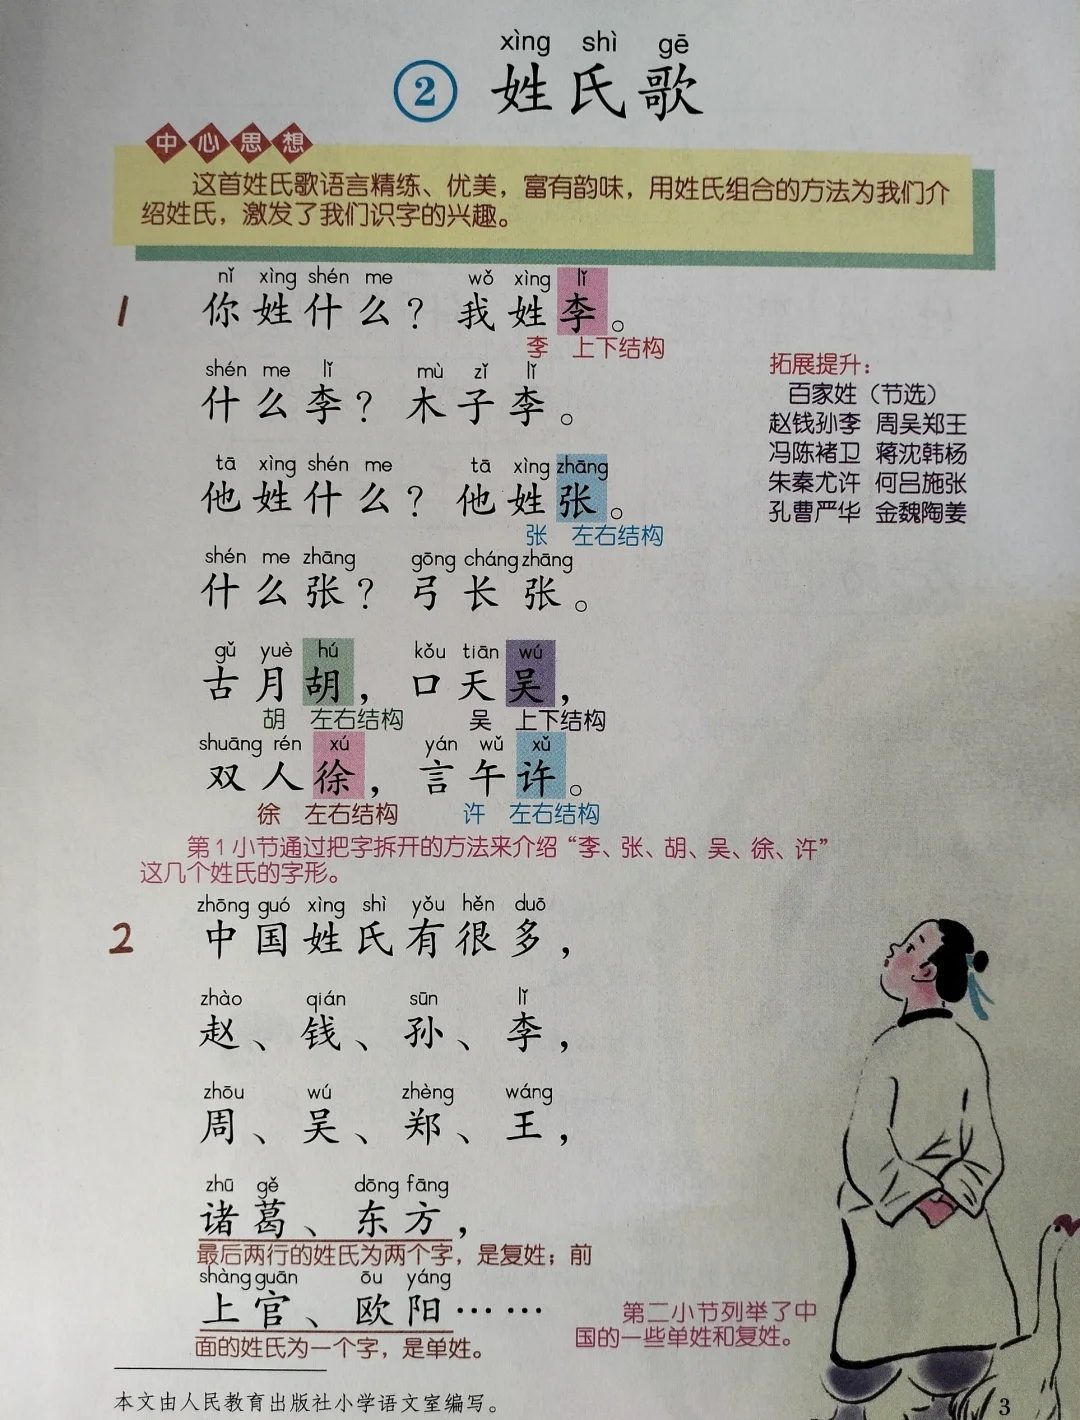 xìng shì gē
② 姓氏歌
中心思想
这首姓氏歌语言精练、优美，富有韵味，用姓氏组合的方法为我们介
绍姓氏，激发了我们识字的兴趣。
nǐ xìng shén me wǒ xìng lǐ
1 你姓什么？我姓李。
李 上下结构
shén me lǐ mù zǐ lǐ
什么李？木子李。
tā xìng shén me tā xìng zhāng
他姓什么？他姓张。
张 左右结构
shén me zhāng gōng cháng zhāng
什么张？弓长张。
gǔ yuè hú kǒu tiān wú
古月胡，口天吴，
胡 左右结构 吴 上下结构
shuāng rén xú yán wǔ xǔ
双人徐，言午许。
徐 左右结构 许 左右结构
第1小节通过把字拆开的方法来介绍“李、张、胡、吴、徐、许”
这几个姓氏的字形。
拓展提升：
百家姓（节选）
赵钱孙李 周吴郑王
冯陈褚卫 蒋沈韩杨
朱秦尤许 何吕施张
孔曹严华 金魏陶姜
zhōng guó xìng shì yǒu hěn duō
2 中国姓氏有很多，
zhào qián sūn lǐ
赵、钱、孙、李，
zhōu wú zhèng wáng
周、吴、郑、王，
zhū gě dōng fāng
诸葛、东方，
最后两行的姓氏为两个字，是复姓；前
shàng guān ōu yáng
上官、欧阳……
面的姓氏为一个字，是单姓。
第二小节列举了中
国的一些单姓和复姓。
本文由人民教育出版社小学语文室编写。
3